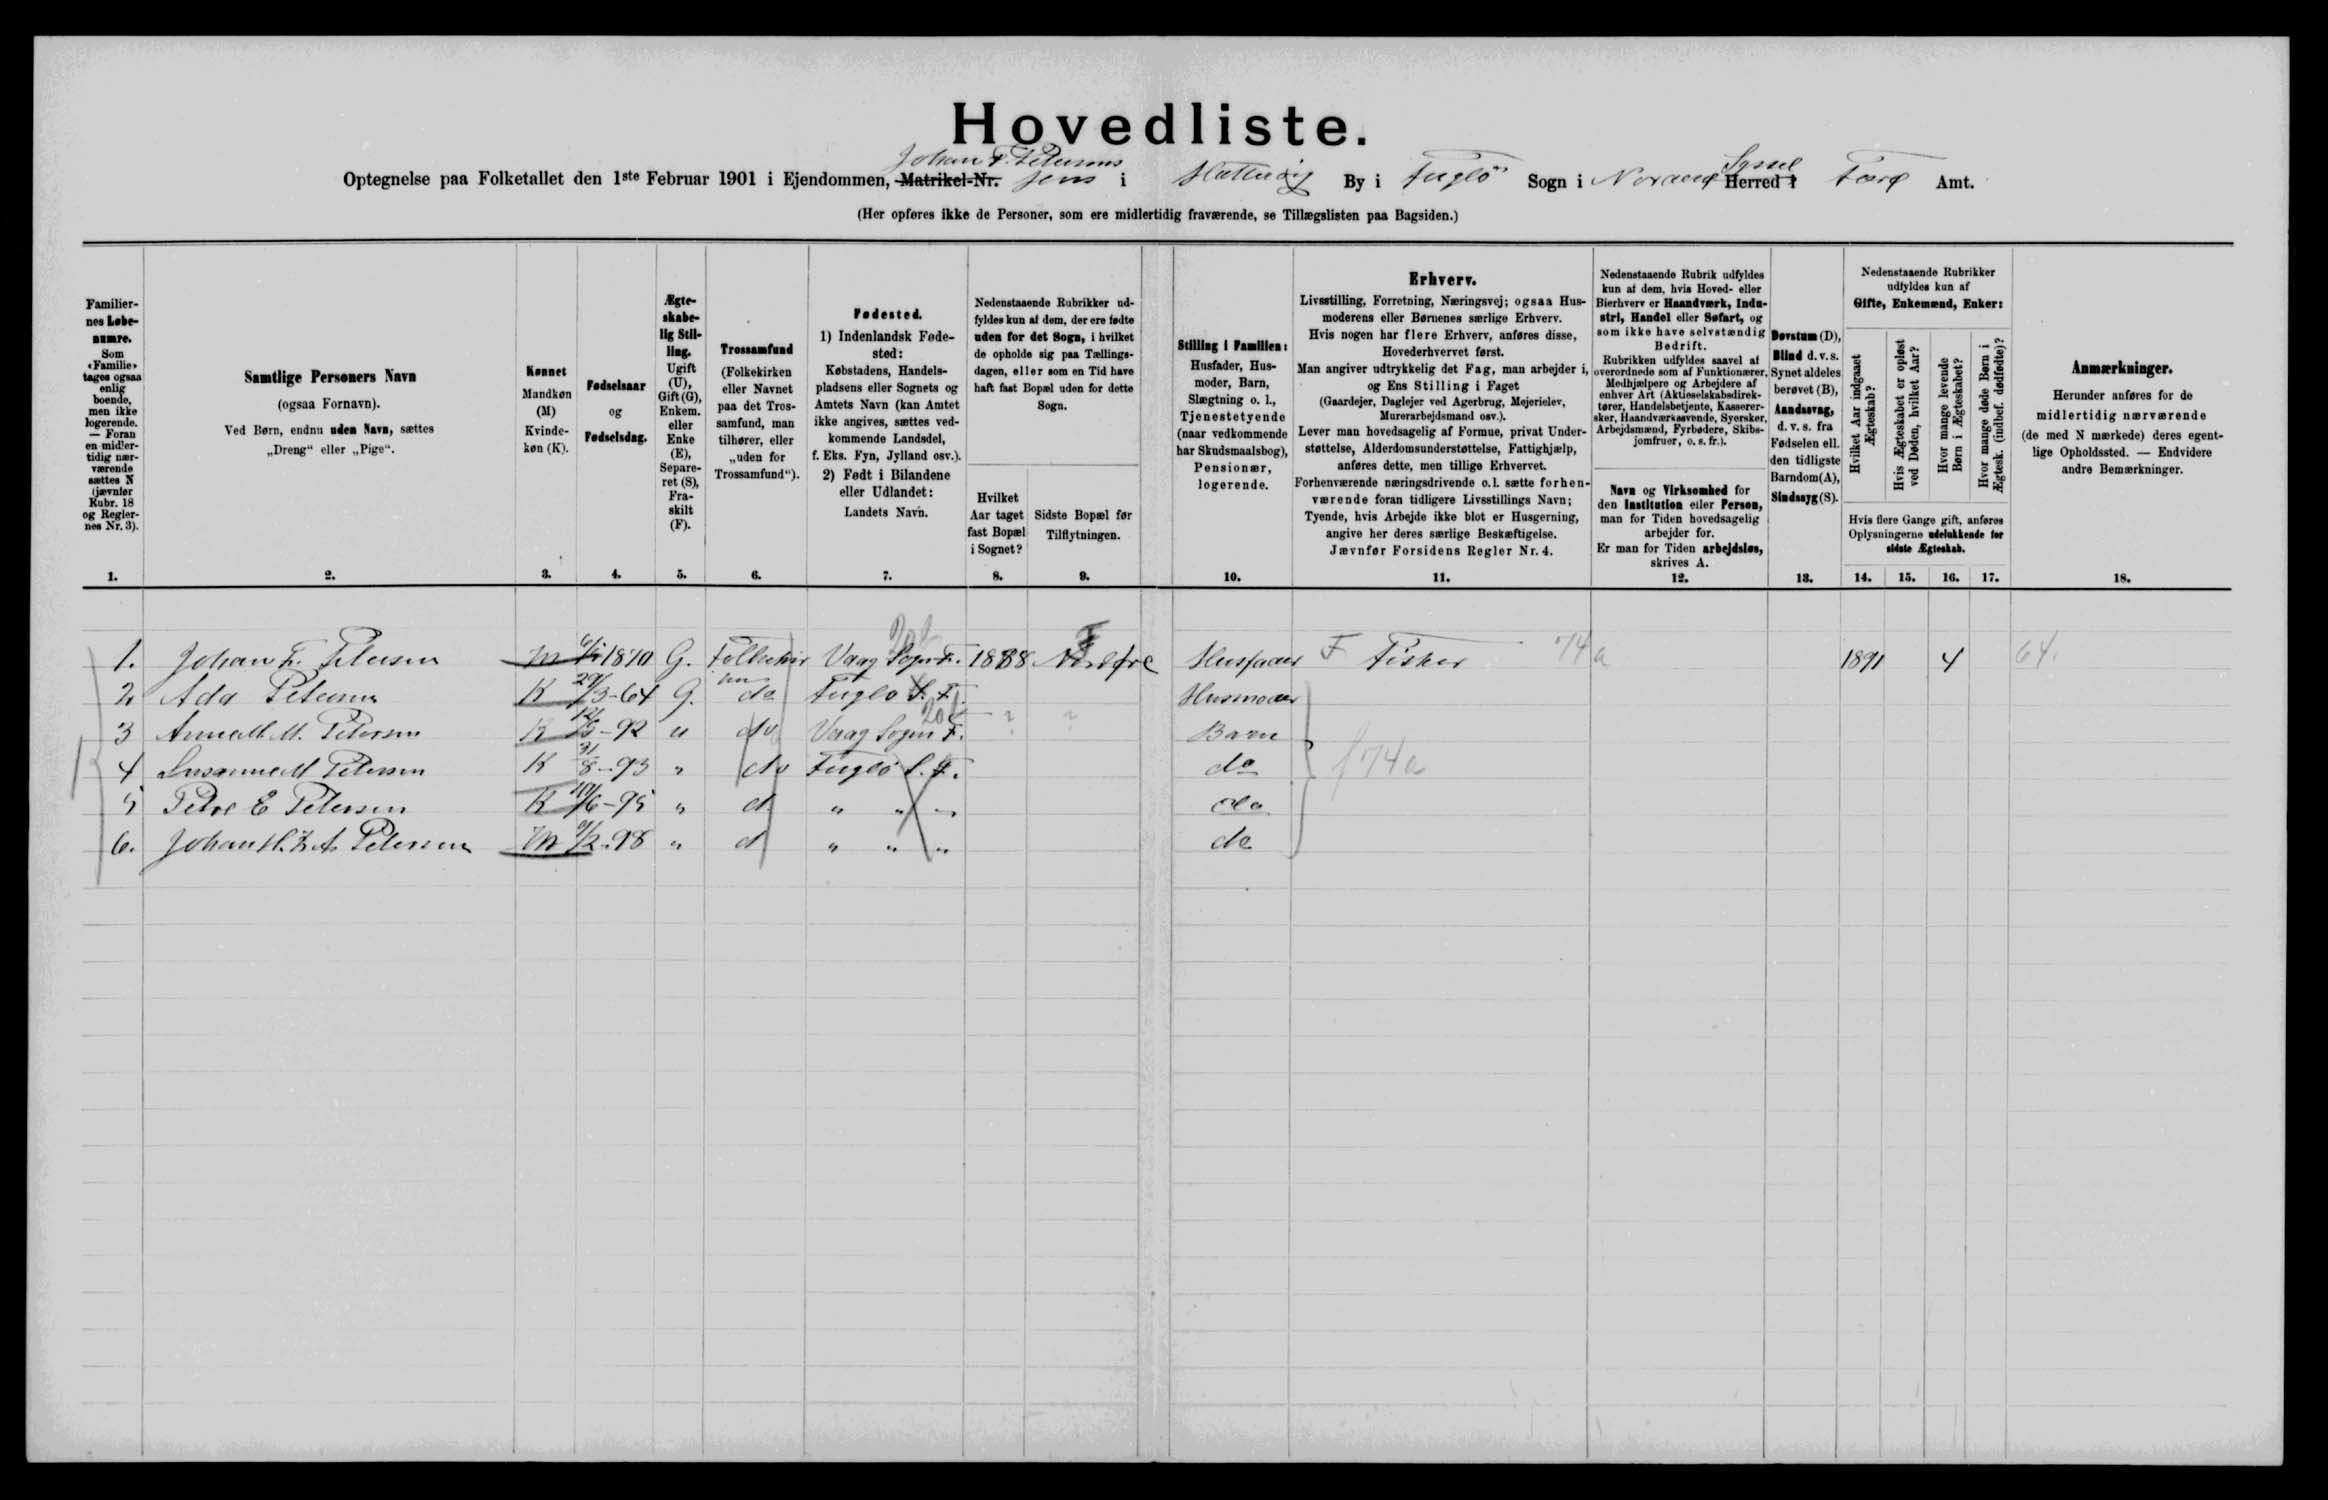 Hovedliste.
Johan F. Petersens
Optegnelse paa Folketallet den 1ste Februar 1901 i Ejendommen, Matrikel-Nr. i Hattervig By i Fuglö Sogn i Norderø Syssel Herred i Færø Amt.
(Her opføres ikke de Personer, som ere midlertidig fraværende, se Tillægslisten paa Bagsiden.)
Familiernes Løbenumre.
Som «Familie» tages ogsaa enlig boende, men ikke logerende. — Foran en midlertidig nærværende sættes N (jævnfør Rubr. 18 og Reglernes Nr. 3).
1.
Samtlige Personers Navn
(ogsaa Fornavn).
Ved Børn, endnu uden Navn, sættes
„Dreng“ eller „Pige“.
2.
Kønnet
Mandkøn (M)
Kvindekøn (K).
3.
Fødselsaar
og
Fødselsdag.
4.
Ægteskabelig Stilling.
Ugift (U), Gift (G), Enkem. eller Enke (E), Separeret (S), Fraskilt (F).
5.
Trossamfund
(Folkekirken eller Navnet paa det Trossamfund, man tilhører, eller „uden for Trossamfund“).
6.
Fødested.
1) Indenlandsk Fødested:
Købstadens, Handelspladsens eller Sognets og Amtets Navn (kan Amtet ikke angives, sættes vedkommende Landsdel, f. Eks. Fyn, Jylland osv.).
2) Født i Bilandene eller Udlandet:
Landets Navn.
7.
Nedenstaaende Rubrikker udfyldes kun af dem, der ere fødte uden for det Sogn, i hvilket de opholde sig paa Tællingsdagen, eller som en Tid have haft fast Bopæl uden for dette Sogn.
Hvilket Aar taget fast Bopæl i Sognet?
8.
Sidste Bopæl før Tilflytningen.
9.
Stilling i Familien:
Husfader, Husmoder, Barn, Slægtning o. l., Tjenestetyende (naar vedkommende har Skudsmaalsbog), Pensionær, logerende.
10.
Erhverv.
Livsstilling, Forretning, Næringsvej; ogsaa Husmoderens eller Børnenes særlige Erhverv.
Hvis nogen har flere Erhverv, anføres disse, Hovederhvervet først.
Man angiver udtrykkelig det Fag, man arbejder i, og Ens Stilling i Faget
(Gaardejer, Daglejer ved Agerbrug, Mejerielev, Murerarbejdsmand osv.).
Lever man hovedsagelig af Formue, privat Understøttelse, Alderdomsunderstøttelse, Fattighjælp, anføres dette, men tillige Erhvervet.
Forhenværende næringsdrivende o.l. sætte forhenværende foran tidligere Livsstillings Navn;
Tyende, hvis Arbejde ikke blot er Husgerning, angive her deres særlige Beskæftigelse.
Jævnfør Forsidens Regler Nr. 4.
11.
Nedenstaaende Rubrik udfyldes kun af dem, hvis Hoved- eller Bierhverv er Haandværk, Industri, Handel eller Søfart, og som ikke have selvstændig Bedrift.
Rubrikken udfyldes saavel af overordnede som af Funktionærer, Medhjælpere og Arbejdere af enhver Art (Aktieselskabsdirektører, Handelsbetjente, Kasserersker, Haandværkssvende, Syersker, Arbejdsmænd, Fyrbødere, Skibsjomfruer, o. s. fr.).
Navn og Virksomhed for den Institution eller Person, man for Tiden hovedsagelig arbejder for.
Er man for Tiden arbejdsløs, skrives A.
12.
Døvstum (D), Blind d. v. s. Synet aldeles berøvet (B), Aandssvag, d. v. s. fra Fødselen ell. den tidligste Barndom (A), Sindssyg (S).
13.
Nedenstaaende Rubrikker udfyldes kun af
Gifte, Enkemænd, Enker:
Hvilket Aar indgaaet Ægteskab?
Hvis Ægteskabet er opløst ved Døden, hvilket Aar?
Hvor mange levende Børn i Ægteskabet?
Hvor mange døde Børn i Ægtesk. (indbef. dødfødte)?
Hvis flere Gange gift, anføres Oplysningerne udelukkende for sidste Ægteskab.
14. 15. 16. 17.
Anmærkninger.
Herunder anføres for de midlertidig nærværende (de med N mærkede) deres egentlige Opholdssted. — Endvidere andre Bemærkninger.
18.
1. Johan F. Petersen M 1870 G. Folkekir Vaag Sogn F. 1888 Nordøre Husfader F Fisker 74a 1891 4 64.
2 Ada Petersen K 29/3-64 G. do Fuglø S. F. Husmoder
3 Anna M. M. Petersen K -92 u do Vaag Sogn F. ? ? Barn
4 Susanne M Petersen K 31/8-93 " do Fuglø S. F. do f 74a
5 Petre E Petersen K 10/6-95 " d " " " do
6. Johan Petersen M 9/2-98 " d " " " do